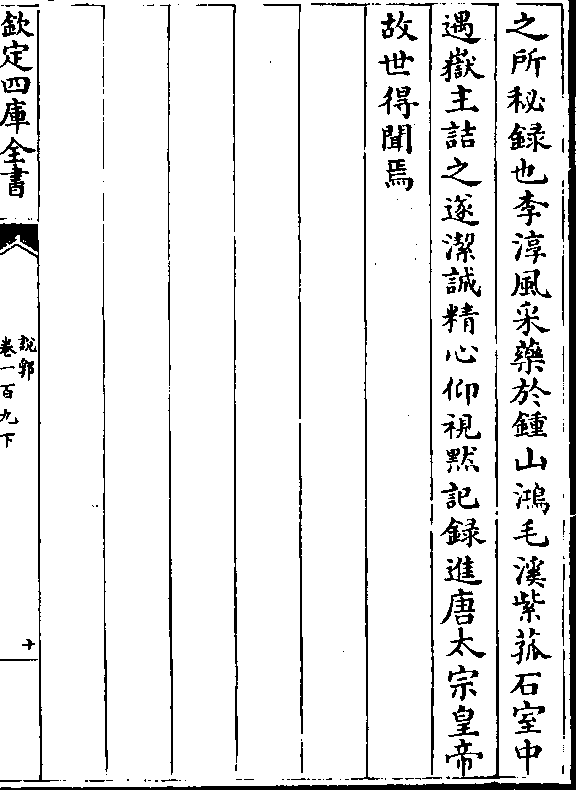 之所秘録也李淳風采藥於鍾山鴻毛溪紫菰石室中
遇嶽主詰之遂潔誠精心仰視黙記録進唐太宗皇帝
故世得聞焉
欽定四庫全書
說郛
卷一百九下
十